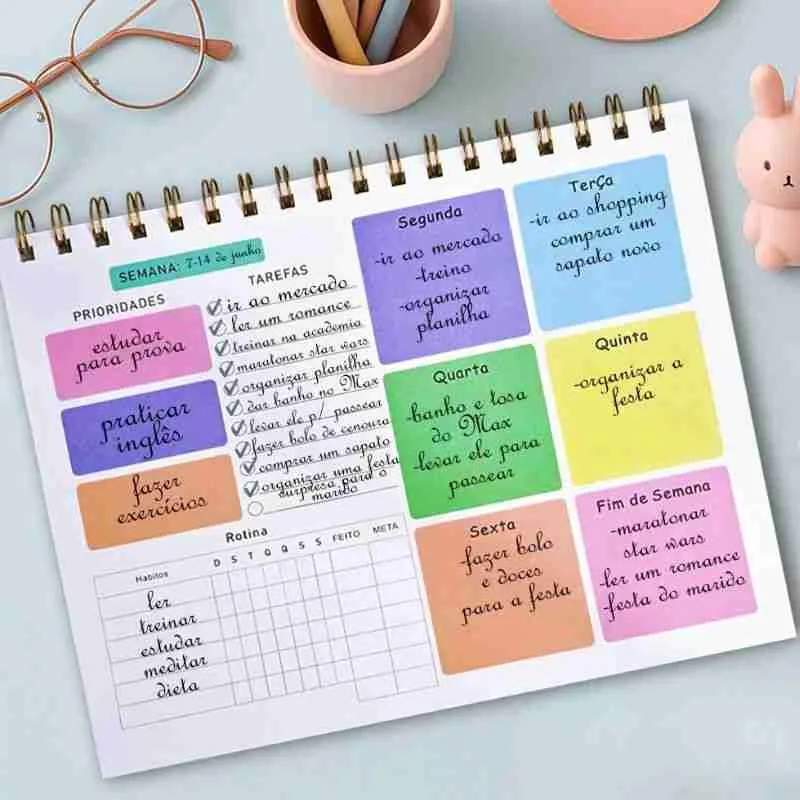 SEMANA: 7-14 de junho
PRIORIDADES
estudar
para prova
praticar
inglês
fazer
exercícios
TAREFAS
ir ao mercado
ler um romance
treinar na academia
maratonar star wars
organizar planilha
dar banho no Max
levar ele p/ passear
fazer bolo de cenoura
comprar um sapato
organizar uma festa
surpresa para o
marido
Rotina
Hábitos D S T Q Q S S FEITO META
ler
treinar
estudar
meditar
dieta
Segunda
-ir ao mercado
-treino
-organizar
planilha
Terça
-ir ao shopping
comprar um
sapato novo
Quarta
-banho e tosa
do Max
-levar ele para
passear
Quinta
-organizar a
festa
Sexta
-fazer bolo
e doces
para a festa
Fim de Semana
-maratonar
star wars
-ler um romance
-festa do marido